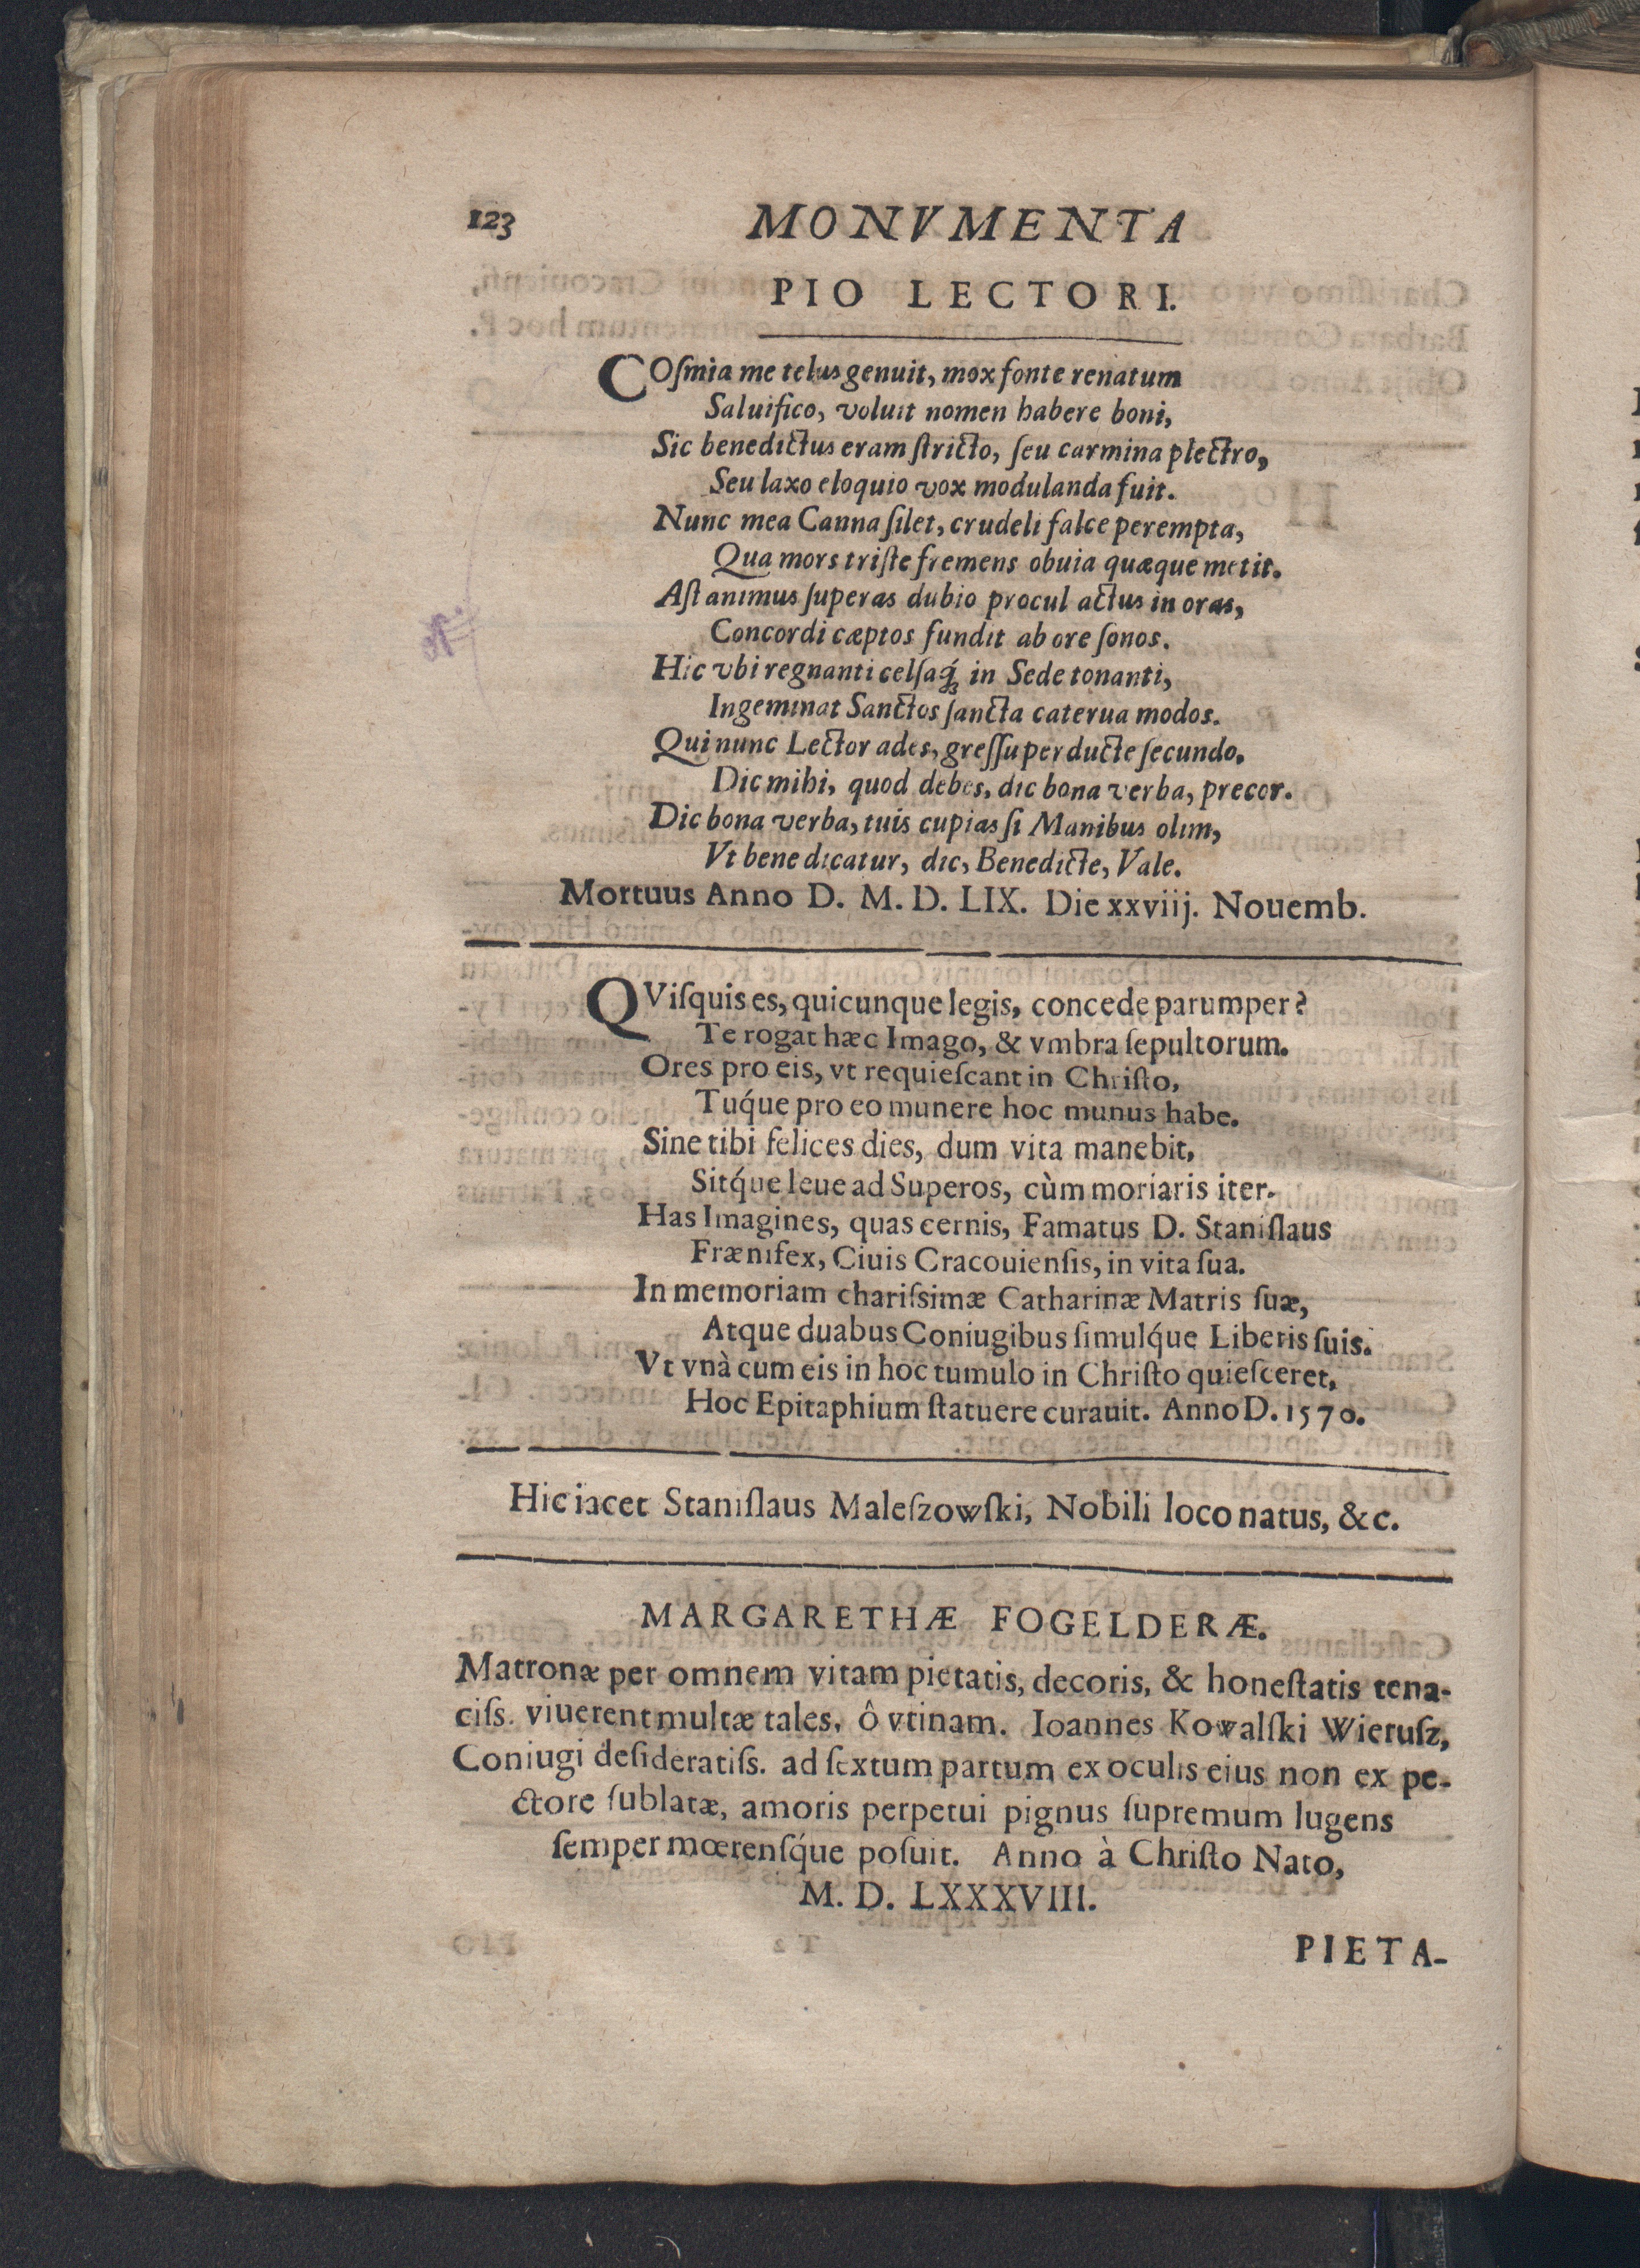 123 MONVMENTA
PIO LECTORI.
COſmia me telus genuit, mox fonte renatum
Saluifico, voluit nomen habere boni,
Sic benedictus eram ſtricto, ſeu carmina plectro,
Seu laxo eloquio vox modulanda fuit.
Nunc mea Canna ſilet, crudeli falce perempta,
Qua mors triſte fremens obuia quæque metit.
Aſt animus ſuperas dubio procul actus in oras,
Concordi cæptos fundit ab ore ſonos.
Hic vbi regnanti celſaq́; in Sede tonanti,
Ingeminat Sanctos ſancta caterua modos.
Qui nunc Lector ades, greſſu perducte ſecundo,
Dic mihi, quod debes, dic bona verba, precor.
Dic bona verba, tuis cupias ſi Manibus olim,
Vt bene dicatur, dic, Benedicte, Vale.
Mortuus Anno D. M. D. LIX. Die xxviij. Nouemb.
QVisquis es, quicunque legis, concede parumper?
Te rogat hæc Imago, & vmbra ſepultorum.
Ores pro eis, vt requieſcant in Chriſto,
Tuq́ue pro eo munere hoc munus habe.
Sine tibi felices dies, dum vita manebit,
Sitq́ue leue ad Superos, cùm moriaris iter.
Has Imagines, quas cernis, Famatus D. Staniſlaus
Frænifex, Ciuis Cracouienſis, in vita ſua.
In memoriam chariſsimæ Catharinæ Matris ſuæ,
Atque duabus Coniugibus ſimulq́ue Liberis ſuis.
Vt vnà cum eis in hoc tumulo in Chriſto quieſceret,
Hoc Epitaphium ſtatuere curauit. Anno D. 1570.
Hic iacet Staniſlaus Maleſzowſki, Nobili loco natus, &c.
MARGARETHÆ FOGELDERÆ.
Matronæ per omnem vitam pietatis, decoris, & honeſtatis tena-
ciſs. viuerent multæ tales, ô vtinam. Ioannes Kowalſki Wieruſz,
Coniugi deſideratiſs. ad ſextum partum ex oculis eius non ex pe-
ctore ſublatæ, amoris perpetui pignus ſupremum lugens
ſemper mœrenſq́ue poſuit. Anno à Chriſto Nato,
M. D. LXXXVIII.
PIETA-